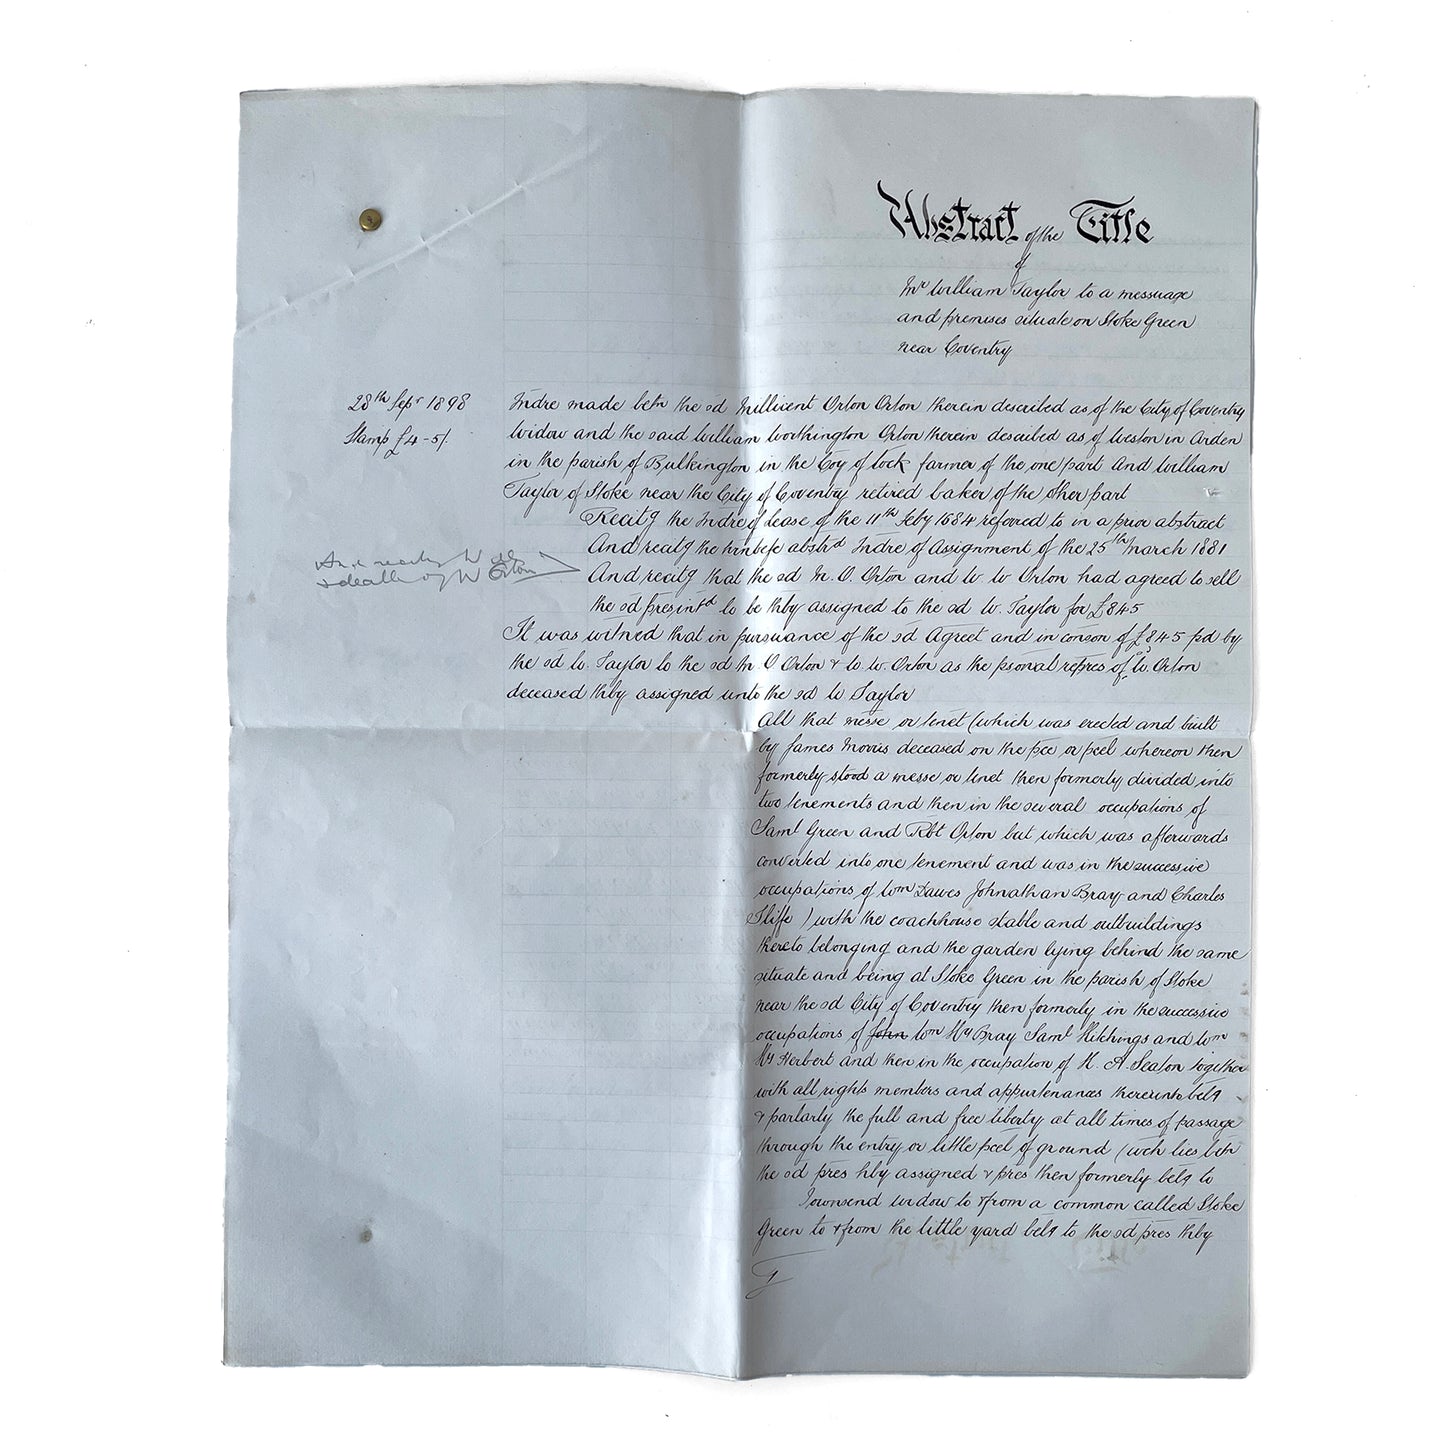 Abstract of the Title
of
Mr William Taylor to a messuage
and premises situate on Stoke Green
near Coventry
28th Sepr 1898
Stamp £4-5/.
Indre made betn the sd Millicent Orton Orton therein described as of the City of Coventry
Widow and the said William Worthington Orton therein described as of Weston in Arden
in the parish of Bulkington in the Coy of Wock farmer of the one part And William
Taylor of Stoke near the City of Coventry retired baker of the other part
Recitg the Indre of Lease of the 11th Feby 1684 referred to in a prior abstract
And recitg the hrinbefe abstrd Indre of Assignment of the 25th March 1881
& death of W Orton
And recitg that the sd M. O. Orton and W. W Orton had agreed to sell
the sd pres intd to be thby assigned to the sd W. Taylor for £845
It was witned that in pursuance of the sd Agreet and in conson of £845 pd by
the sd W. Taylor to the sd M. O. Orton & W. W. Orton as the psonal repres of W. Orton
deceased thby assigned unto the sd W Taylor
All that messe or tenet (which was erected and built
by James Morris deceased on the pce or pcel whereon then
formerly stood a messe or tenet then formerly divided into
two tenements and then in the several occupations of
Saml Green and Robt Orton but which was afterwards
converted into one tenement and was in the successive
occupations of Wm Dawes Johnathan Bray and Charles
Iliffe) with the coachhouse stable and outbuildings
thereto belonging and the garden lying behind the same
situate and being at Stoke Green in the parish of Stoke
near the sd City of Coventry then formerly in the successive
occupations of John Wm Hy Bray Saml Kitchings and Wm
Hy Herbert and then in the occupation of H. A. Seaton together
with all rights members and appurtenances thereunto belg
& parlarly the full and free liberty at all times of passage
through the entry or little pcel of ground (wch lies betn
the sd pres hby assigned & pres then formerly belg to
Townsend widow to & from a common called Stoke
Green to & from the little yard belg to the sd pres thby